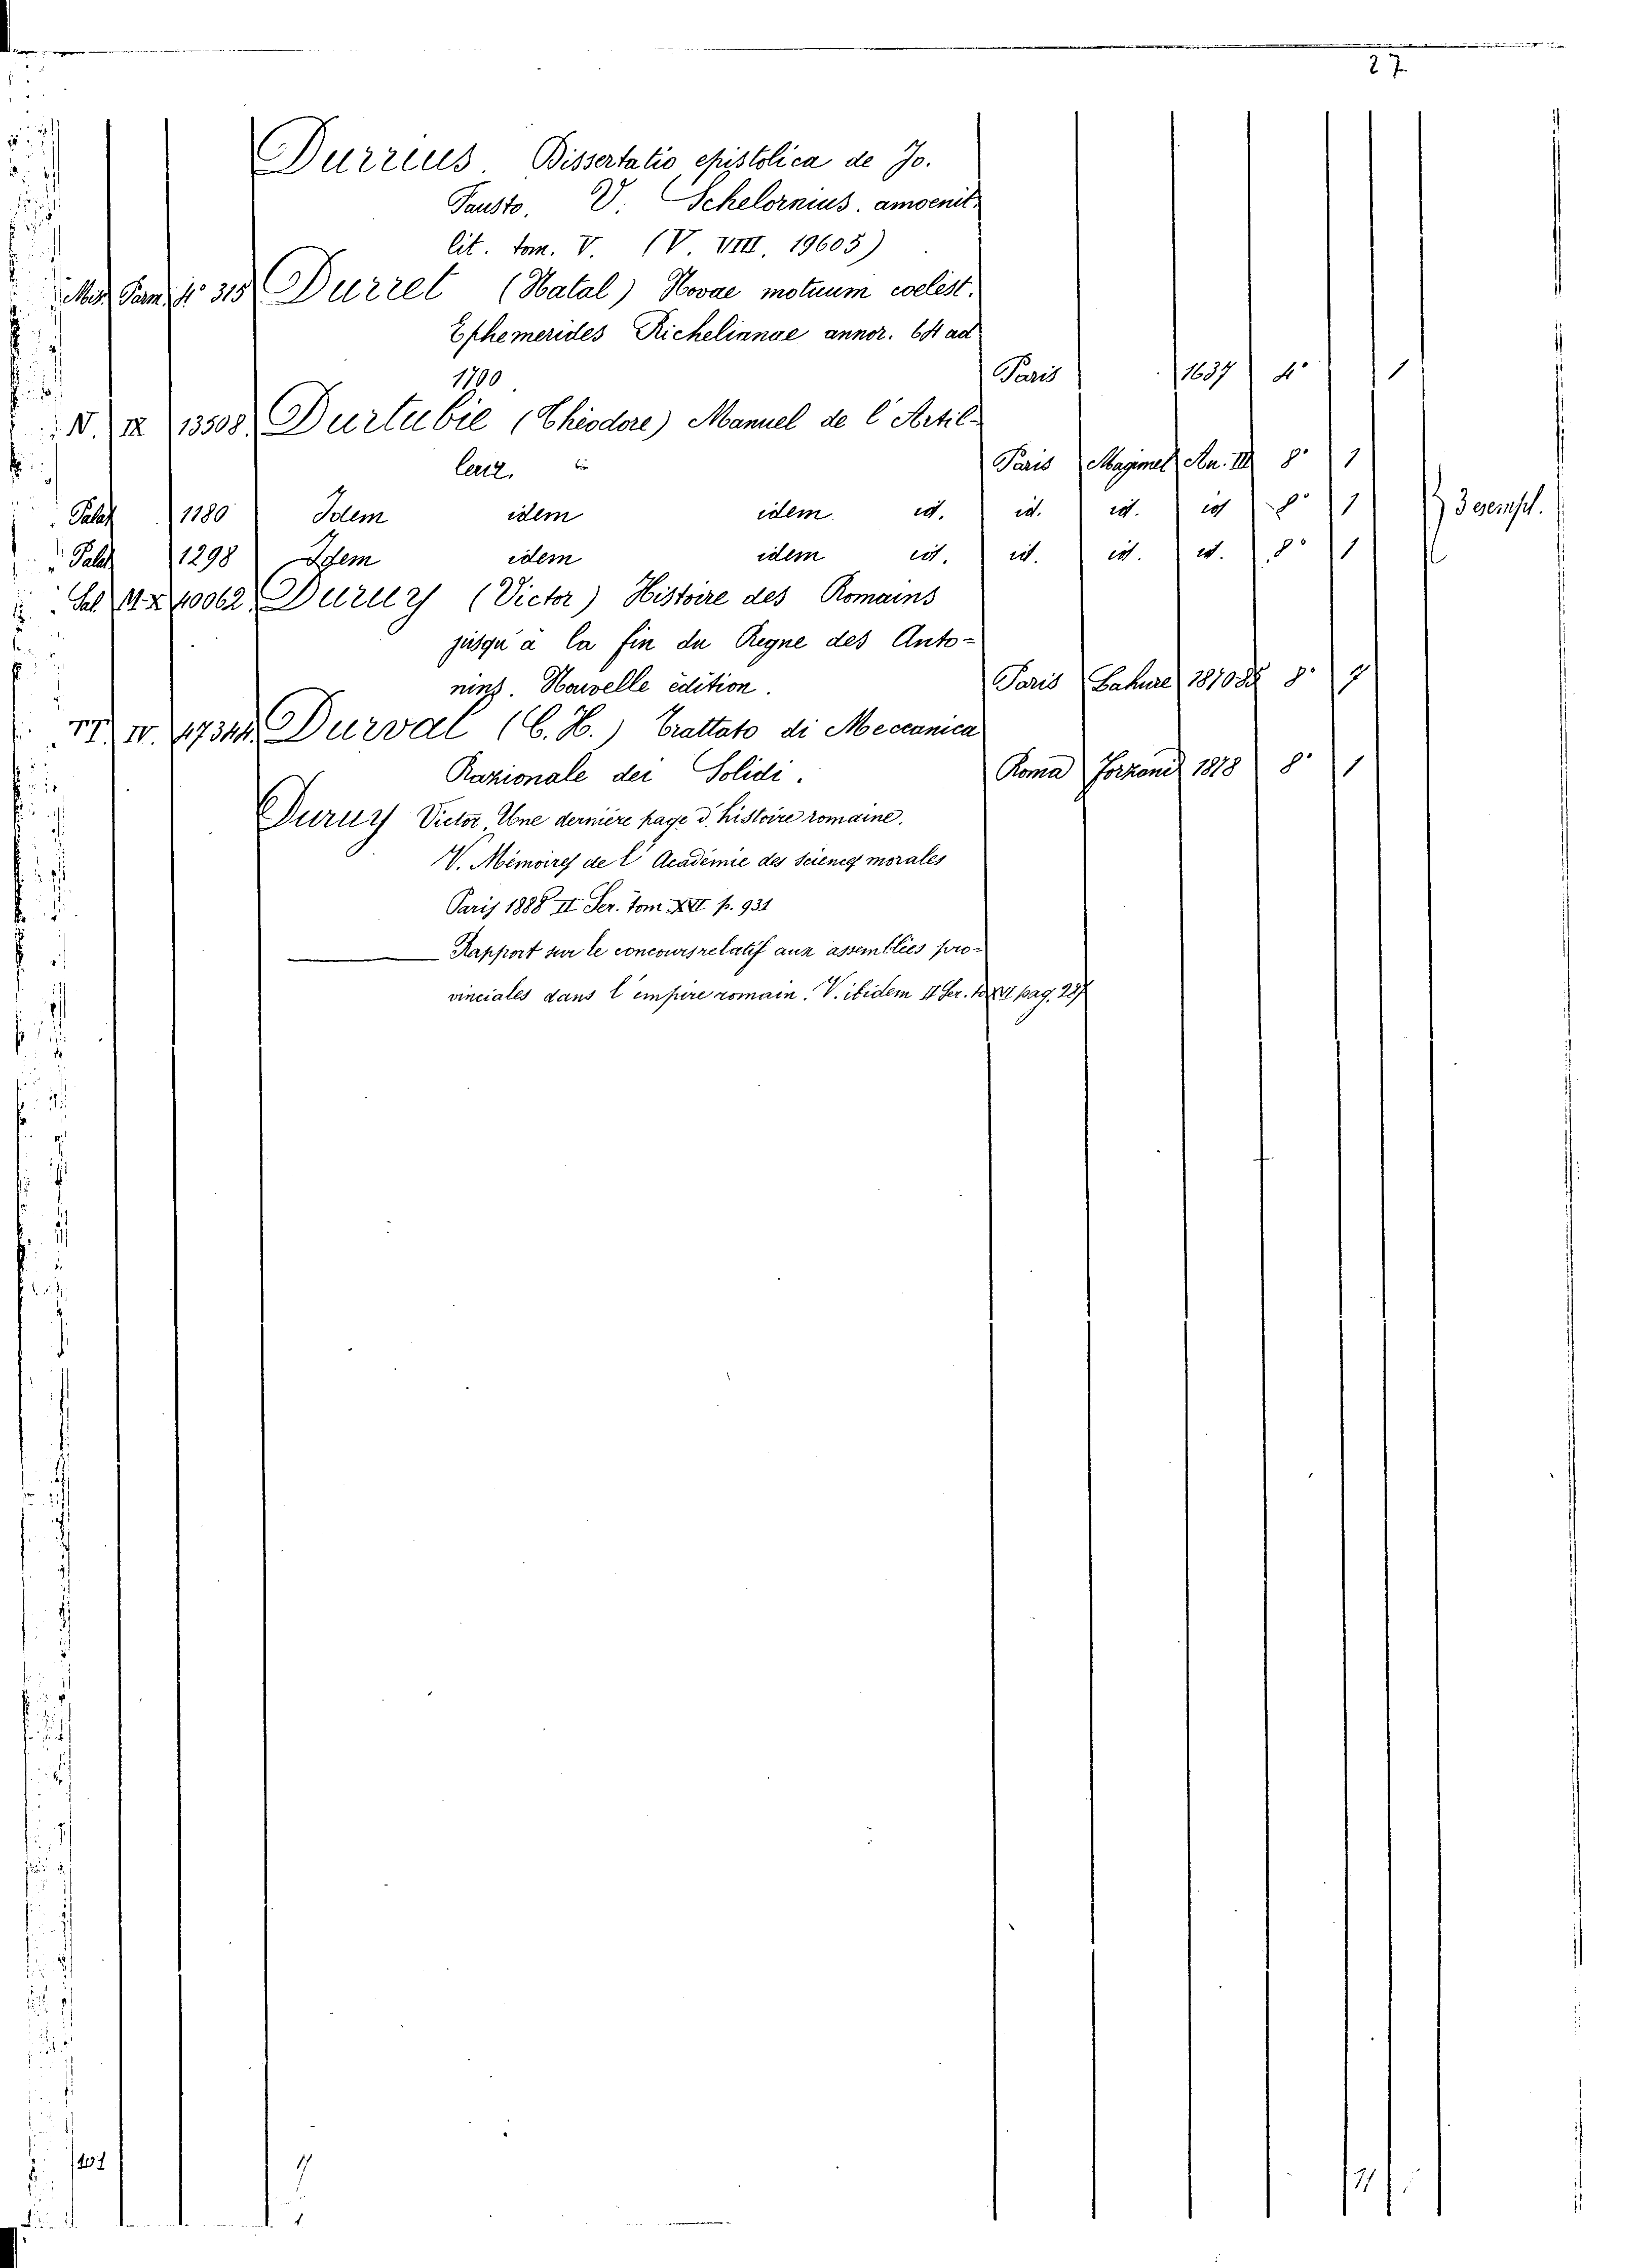 27
Durrius. Dissertatio epistolica de Jo.
Fausto. V. Schelornius. amoenit.
lit. tom. V. (V. VIII. 19605)
Mis. Parm. N° 315 Durret (Natal) Novae motuum coelest.
Ephemerides Richelianae annor. ad
1700 Paris 1637 4° 1
N. IX 13508 Durtubie (Théodore) Manuel de l'Artil-
lerie. Paris Magimel An. III 8° 1
Palat 1180 Idem idem idem id. id. id. id 8° 1 3 esempl.
Palat 1298 Idem idem idem id. id. id. id. 8° 1
Sal. 40062 Duruy (Victor) Histoire des Romains
jusqu'à la fin du Regne des Anto-
nins. Nouvelle édition. Paris Lahure 8° 7
IV. Durval (C. H.) Trattato di Meccanica
Razionale dei Solidi. Roma Forzani 1878 8° 1
Duruy Victor, Une dernière page d'histoire romaine.
V. Mémoires de l'Académie des Sciences morales
Paris 1888 II Ser. tom. XVI p. 931
Rapport sur le concours relatif aux assemblées pro-
vinciales dans l'empire romain. V. ibidem II Ser. pag. 287
7
1